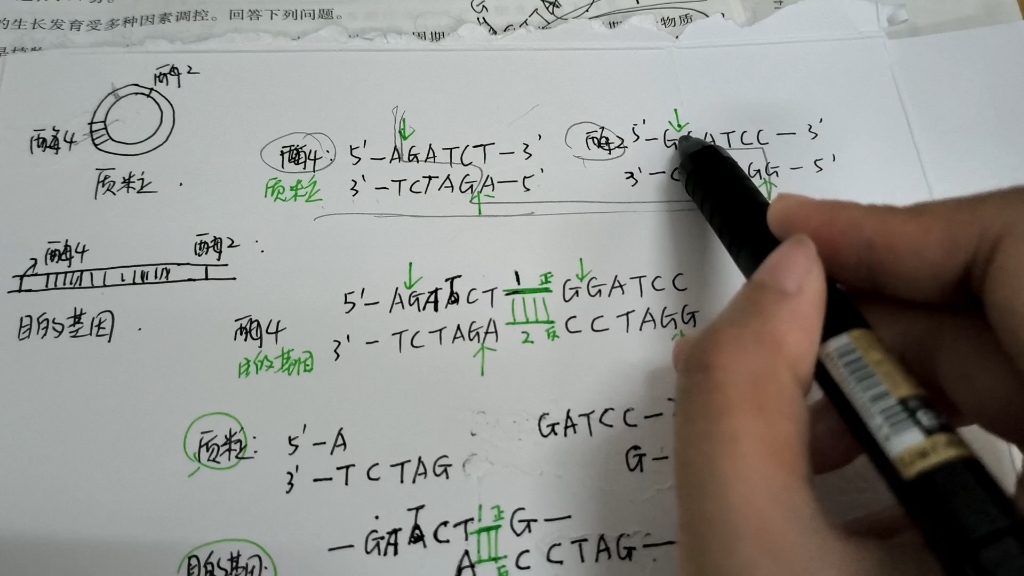 的生长发育受多种因素调控。回答下列问题。
周期
物质
酶2
酶4
质粒.
酶4: 5'-AGATCT-3'
质粒 3'-TCTAGA-5'
酶2 5'-G ATCC-3'
3'-C GG-5'
酶4 酶2:
目的基因.
5'-AGATCT 1 正 GGATCC
酶4 3'-TCTAGA 2 反 CCTAGG
目的基因
质粒: 5'-A GATCC-
3'-TCTAG G-
-GATCT 1 正 G-
目的基因 A 反 CCTAG-